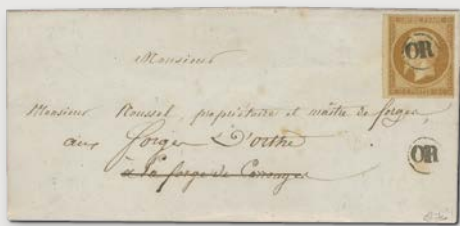 OR
Monsieur
Monsieur Roussel, propriétaire et maître de forges,
aux forges D'orthe
OR
à la forge de